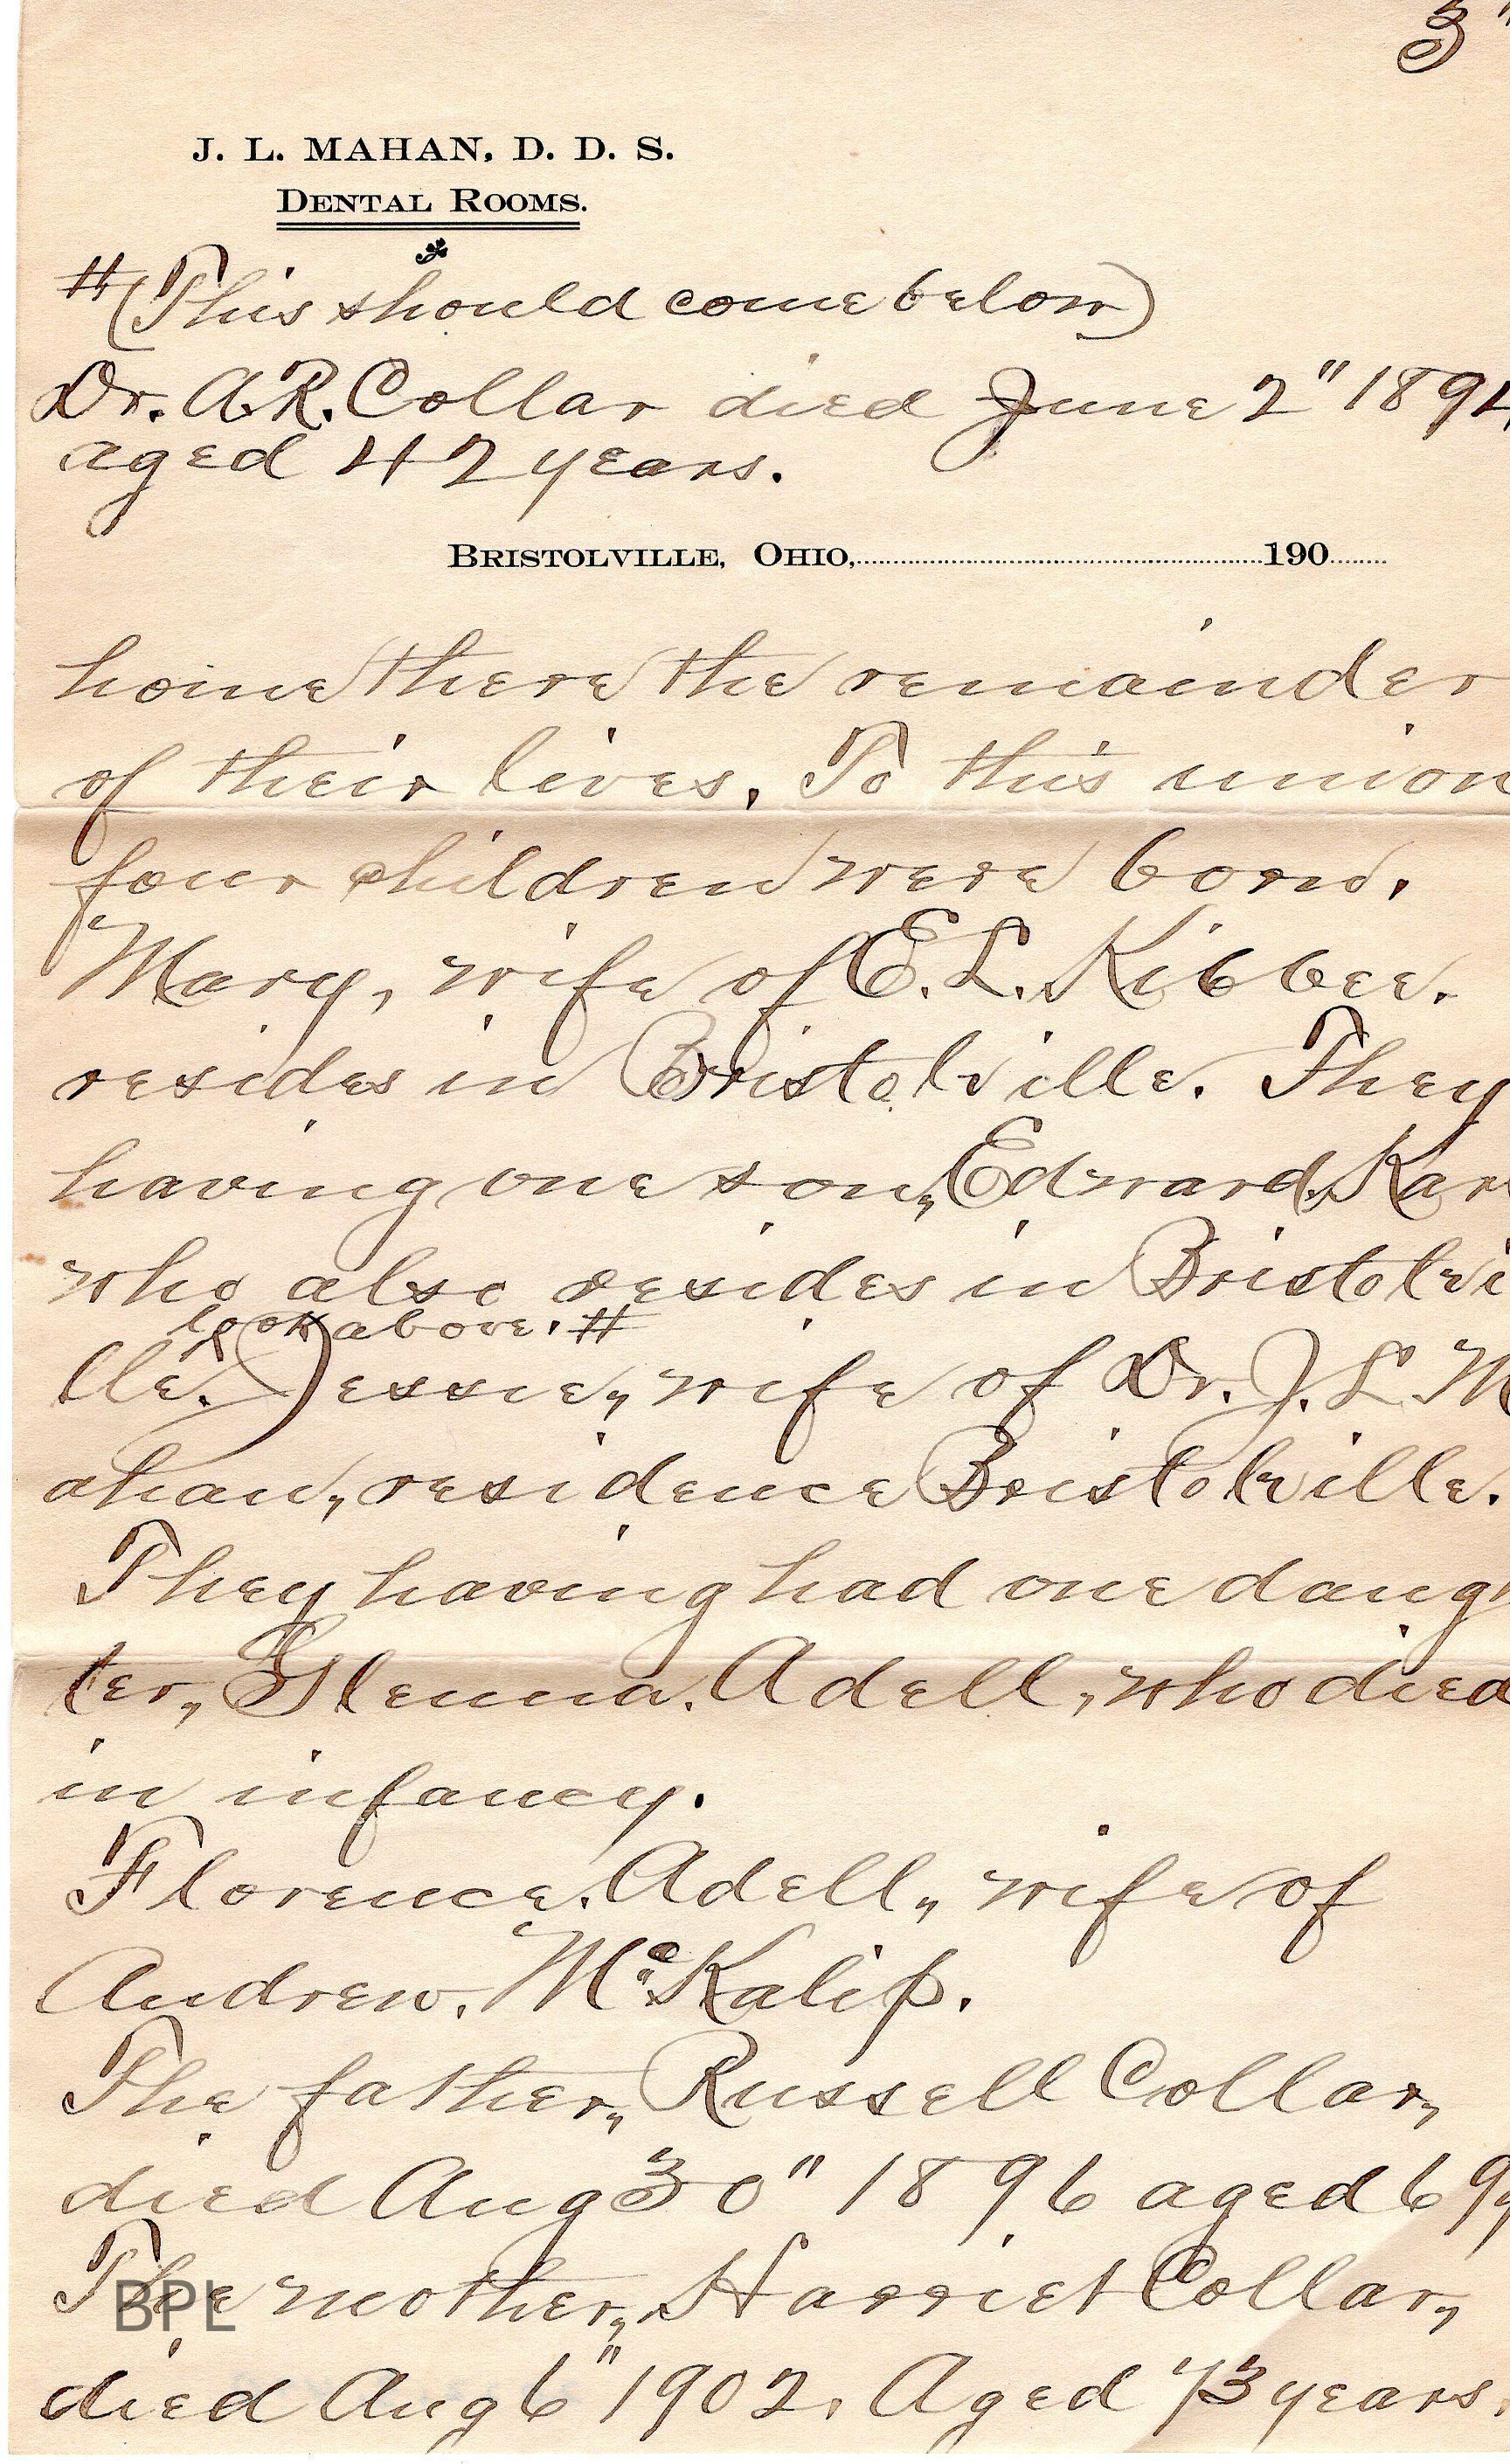 3"
J. L. MAHAN, D. D. S.
DENTAL ROOMS.
# (This should come below)
Dr. A.R. Collar died June 2" 1894
aged 42 years.
BRISTOLVILLE, OHIO, 190
home there the remainder
of their lives. To this union
four children were born.
Mary, wife of E. L. Kibbee.
resides in Bristolville. They
having one son, Edward. Kar
who also resides in Bristolvi
look above. #
lle. Jessie, wife of Dr. J. L. M
ahan, residence Bristolville.
They having had one daugh
ter, Glenna. Adell, who died
in infancy.
Florence. Adell, wife of
Andrew. McKalip.
The father, Russell Collar,
died Aug 30" 1896 aged 69y
The mother, Harriet Collar,
died Aug 6" 1902. Aged 73 years.
BPL